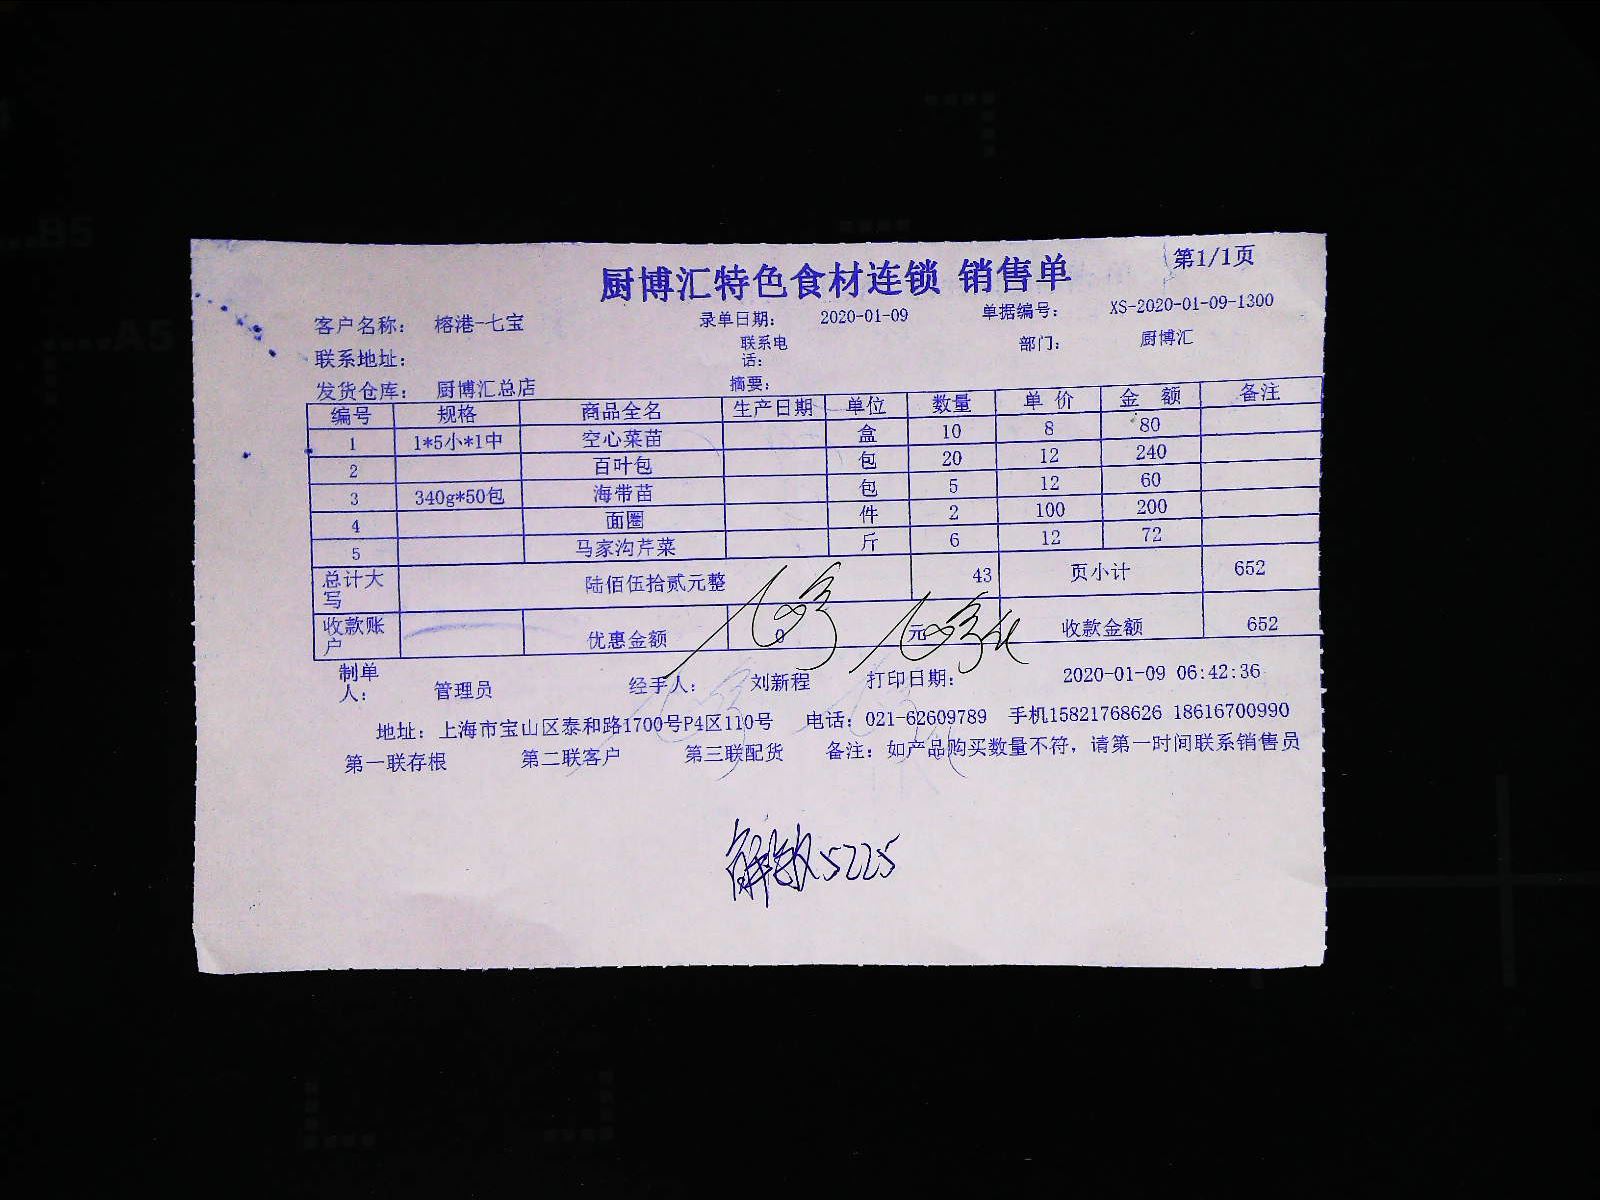 厨博汇特色食材连锁 销售单 第1/1页
客户名称： 榕港-七宝 录单日期： 2020-01-09 单据编号： XS-2020-01-09-1300
联系地址： 联系电话： 部门： 厨博汇
发货仓库： 厨博汇总店 摘要：
编号 规格 商品全名 生产日期 单位 数量 单价 金额 备注
1 1*5小*1中 空心菜苗 盒 10 8 80
2 百叶包 包 20 12 240
3 340g*50包 海带苗 包 5 12 60
4 面圈 件 2 100 200
5 马家沟芹菜 斤 6 12 72
总计大写 陆佰伍拾贰元整 43 页小计 652
收款账户 优惠金额 0 元 收款金额 652
制单人： 管理员 经手人： 刘新程 打印日期： 2020-01-09 06:42:36
地址：上海市宝山区泰和路1700号P4区110号 电话：021-62609789 手机15821768626 18616700990
第一联存根 第二联客户 第三联配货 备注：如产品购买数量不符，请第一时间联系销售员
5225